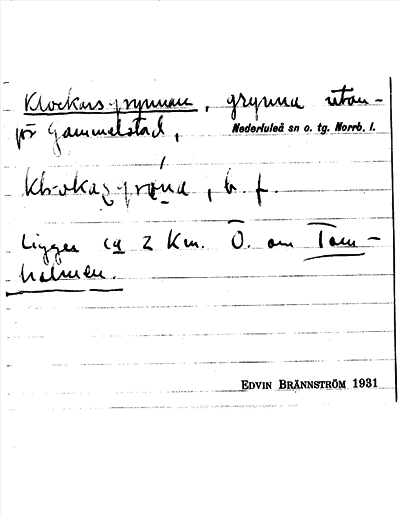 Klockarsgrynnan, grynna utan-
för Gammelstad,
Nederluleå sn o. tg. Norrb. l.
b. f.
Ligger ca 2 Km. Ö. om Tom-
holmen.
EDVIN BRÄNNSTRÖM 1931